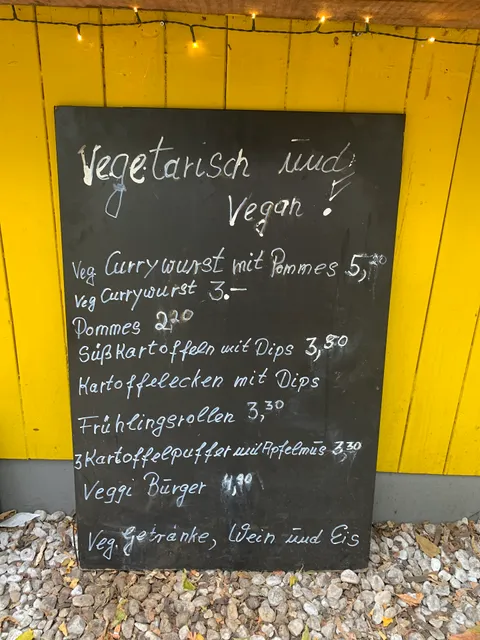 Vegetarisch und
Vegan!
Veg Currywurst mit Pommes 5,20
Veg Currywurst 3.-
Pommes 2,20
Süßkartoffeln mit Dips 3,80
Kartoffelecken mit Dips
Frühlingsrollen 3,30
3 Kartoffelpuffer mit Apfelmus 3,30
Veggi Bürger 4,90
Veg. Getränke, Wein und Eis